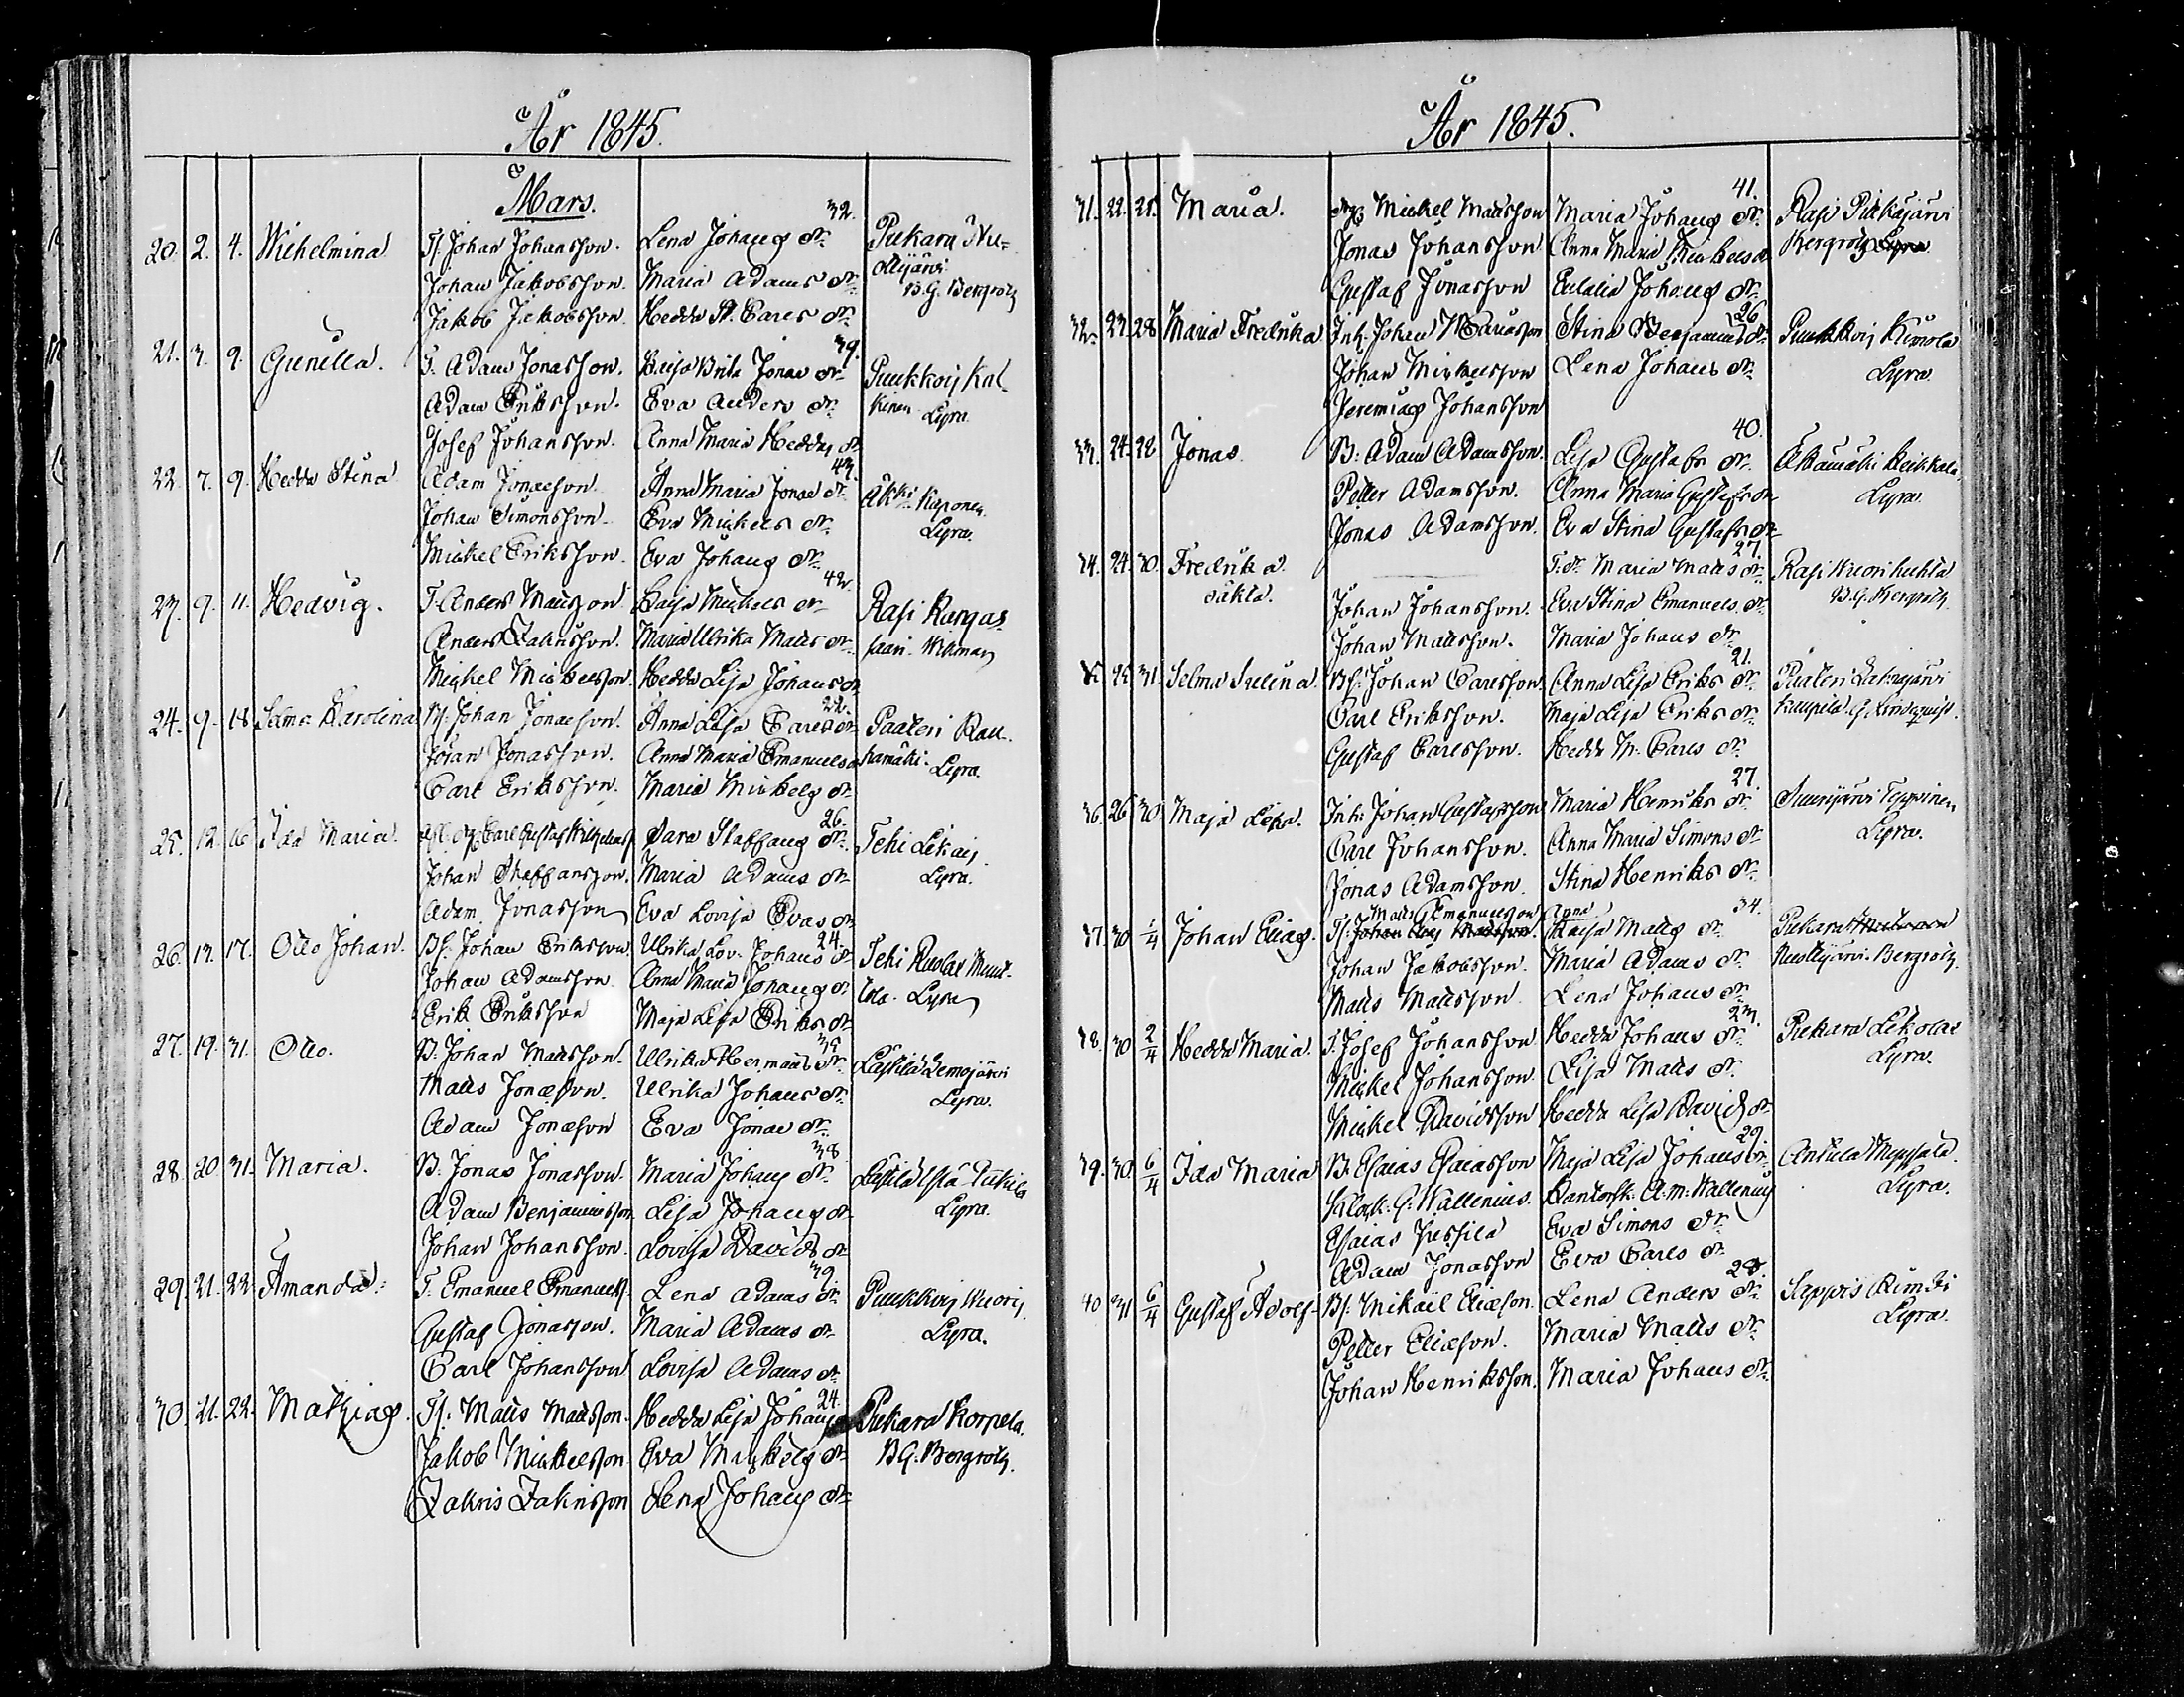 År 1845.
Mars.
32.
20. 2. 4. Wilhelmina Tf. Johan Johansson. Lena Johans dr. Pukara Nu-
Johan Jakobsson. Maria Adams dr. ottijärvi
Jakob Jakobsson. Hedda St. Carls dr. B.G. Bergroth
39.
21. 3. 9. Gunilla. T. Adam Jonasson. Caisa Brita Jonae dr. Punkkois Kal-
Adam Eriksson. Eva Anders dr. kinen Lyra.
Josef Johansson. Anna Maria Hedda dr.
43.
22. 7. 9. Hedda Stina Adam Jonaeson. Anna Maria Jonae dr. Äkki Kaponen.
Johan Simonsson. Eva Mickels dr. Lyra.
Mickel Eriksson. Eva Johans dr.
42.
23. 9. 11. Hedvig. T. Anders Mattsson Caisa Mickels dr. Rasi Kangas-
Anders Zakrisson. Maria Ulrika Matts dr. saari. Wikman
Mickel Mickelsson. Hedda Lisa Johans dr.
22.
24. 9. 18. Selma Karolina Bf. Johan Jonaeson. Anna Lisa Carls dr. Paateri Rau-
Johan Jonasson. Anna Maria Emanuels dr. hamäki. Lyra.
Carl Eriksson. Maria Mickels dr.
26.
25. 12. 16. Ida Maria. Carl Gustaf Wilhelmss. Sara Staffans dr. Tehi Likais.
Johan Staffansson. Maria Adams dr. Lyra.
Adam Jonasson Eva Lovisa Evas dr.
24.
26. 13. 17. Otto Johan. Bf. Johan Eriksson Ulrika Lov. Johans dr. Tehi Ruolax
Johan Adamsson Anna Maria Johans dr. Lyra
Erik Eriksson Maja Lisa Eriks dr.
35
27. 19. 31. Otto. B. Johan Mattsson. Ulrika Hermans dr. Lassila Lemojärvi
Matts Jonaeson. Ulrika Johans dr. Lyra.
Adam Jonaeson Eva Jonae dr.
38
28. 20 31. Maria. B. Jonas Jonasson. Maria Johans dr. Lassila Ylstä Tukila
Adam Benjaminsson Lisa Johans dr. Lyra.
Johan Johansson. Lovisa Davids dr.
39.
29. 21. 22. Amanda. T. Emanuel Emanuelss. Lena Adams dr. Punkkois Wuoris.
Gustaf Jonasson. Maria Adams dr. Lyra.
Carl Johansson Lovisa Adams dr.
24.
30. 21. 22. Mathias. Tf. Matts Mattsson. Hedda Lisa Johans Pukara Korpela.
Jakob Mickelsson Eva Mickels dr. B.G. Bergroth.
Zakris Zakrisson Lena Johans dr.
År 1845.
41.
31. 22. 25. Maria. Mickel Mattsson Maria Johans dr. Rasi Pitkäjärvi
Jonas Johansson Anna Maria Mickels dr. Bergroth Lyra
Gustaf Jonasson Eulalia Johans dr.
26
32. 23. 28 Maria Fredrika Inh. Johan Stina Benjamins dr. Punkkois Kivirola
Johan Mickelsson Lena Johans dr. Lyra.
Jeremias Johansson
40.
33. 24. 22 Jonas. B. Adam Adamsson. Lisa Gustafs dr. Äkämäki Keikkala
Petter Adamsson. Anna Maria Gustafs dr. Lyra.
Jonas Adamsson. Eva Stina Gustafs dr.
27.
34. 24. 30. Fredrika T. dr. Maria Matts dr. Rasi Kuorikukta
oäkta. Johan Johansson. Eva Stina Emanuels dr. B.G. Bergroth.
Johan Mattsson. Maria Johans dr.
21.
35. 25 31. Selma Serlina Bf. Johan Carlsson. Anna Lisa Eriks dr. Paateri
Carl Eriksson. Maja Lisa Eriks dr. G. Lindqvist.
Gustaf Carlsson. Hedda M. Carls dr.
27
36. 26 30. Maja Lisa. Inh: Johan Gustafsson Maria Henriks dr. Suurijärvi Teppinen
Carl Johansson. Anna Maria Simons dr. Lyra.
Jonas Adamsson. Stina Henriks dr.
Matts Emanuelsson Anna 34.
37. 30 1/4 Johan Elias. Tf. Maija Matts dr. Pukara
Johan Jakobsson. Maria Adams dr. Nuottijärvi. Bergroth.
Matts Mattsson Lena Johans dr.
23.
38. 30 2/4 Hedda Maria. T. Josef Johansson Hedda Johans dr. Pukara Likolax
Mickel Johansson Lisa Matts dr. Lyra.
Mickel Davidsson Hedda Lisa Davids dr.
29.
39. 30. 6/4 Ida Maria B. Esaias Esaiasson Maja Lisa Johans dr. Antila
Klock. G. Wallenius. Kantorsk. A.M. Wallenius Lyra.
Esaias Jussila Eva Simons dr.
Adam Jonasson Eva Carls dr.
28.
40 31 6/4 Gustaf Adolf Bf. Mikaël Eliaeson. Lena Anders dr. Seppis Rimski
Petter Eliaeson. Maria Matts dr. Lyra.
Johan Henriksson. Maria Johans dr.